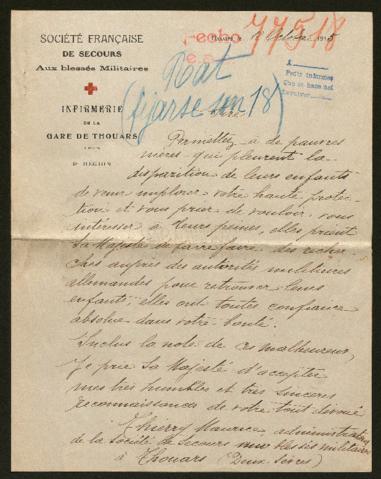 SOCIÉTÉ FRANÇAISE
DE SECOURS
Aux blessés Militaires
INFIRMERIE
DE LA
GARE DE THOUARS
9e RÉGION
Thouars le 1915
77518
Rat
(fijarse en 18)
Sire
Permettez à de pauvres
mères qui pleurent la
disparition de leurs enfants
de venir implorer votre haute protec-
tion et vous prier de vouloir vous
intéresser à leurs peines, elles prient
Sa Majesté de faire faire des recher-
ches auprès des autorités militaires
allemandes pour retrouver leurs
enfants; elles ont toute confiance
absolue dans votre bonté.
Inclus la note de ces malheureux,
Je prie Sa Majesté d'accepter
mes très humbles et très sincères
reconnaissances de votre tout dévoué
Thierry Maurice, administrateur
de la Société de Secours aux blessés militaires
à Thouars (Deux-Sèvres)